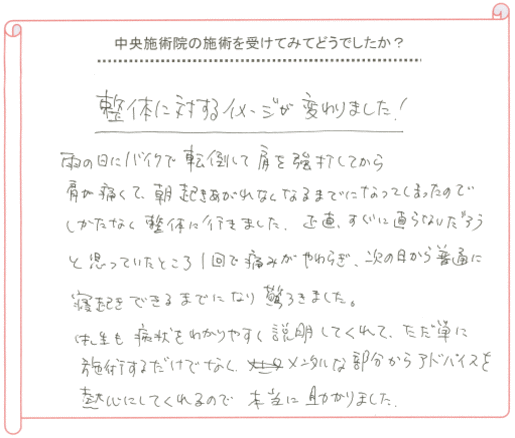 中央施術院の施術を受けてみてどうでしたか？
整体に対するイメージが変わりました！
雨の日にバイクで転倒して肩を強打してから
肩が痛くて、朝起きあがれなくなるまでになってしまったので
しかたなく整体に行きました。正直、すぐに直らないだろう
と思っていたところ1回で痛みがやわらぎ、次の日から普通に
寝起きできるまでになり驚ろきました。
先生も病状をわかりやすく説明してくれて、ただ単に
施術するだけでなく、メンタルな部分からアドバイスを
熱心にしてくれるので本当に助かりました。